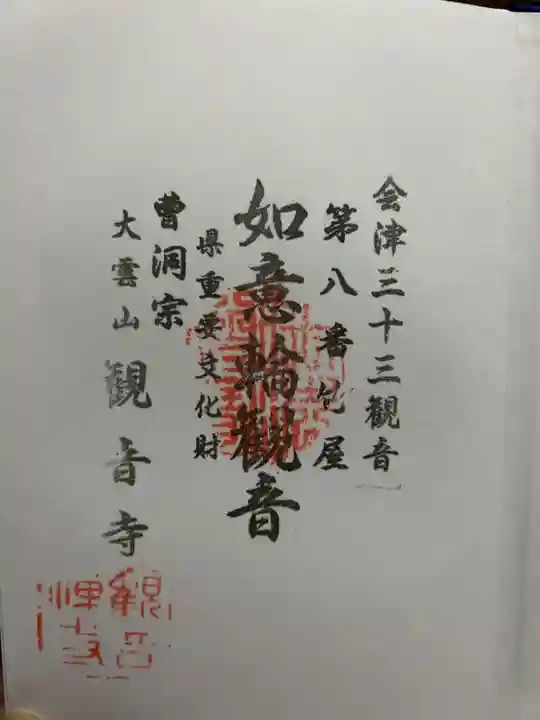 会津三十三観音
第八番包屋
如意輪観音
県重要文化財
曹洞宗
大雲山観音寺